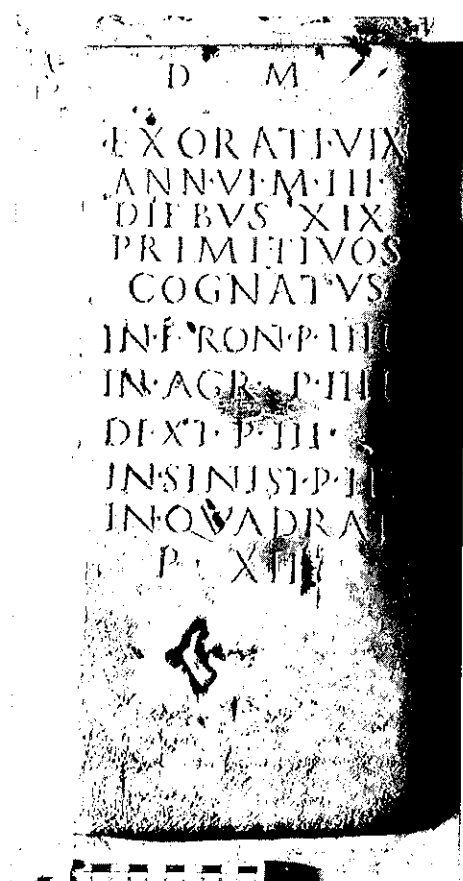 D M
EXORATI·VIX
ANN·VI·M·III·
DIEBVS XIX
PRIMITIVOS
COGNATVS
IN·FRON·P·IIII
IN·AGR· P·IIII
DEXT·P·III·
IN·SINIST·P·III
IN·QVADRAT
P XIII